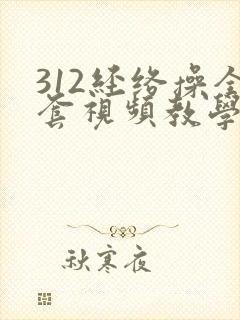 312经络操全
套視頻教學
秋寒夜